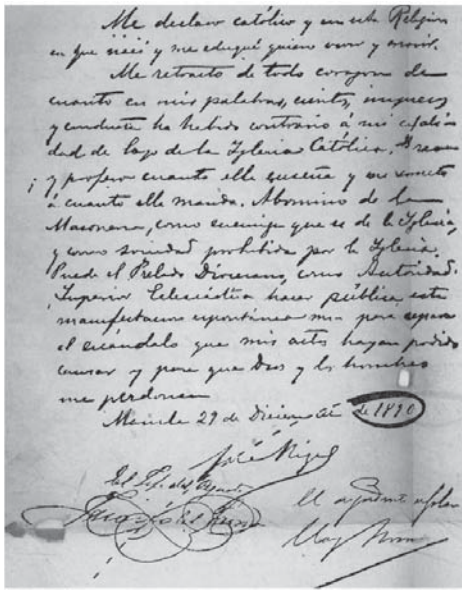 Me declaro católico y en esta Religion
en que nací y me eduqué quiero vivir y morir.
Me retracto de todo corazon de
cuanto en mis palabras, escritos, impresos
y conducta ha habido contrario á mi cali
dad de hijo de la Iglesia Católica. Creo
y profeso cuanto ella enseña y me someto
á cuanto ella manda. Abomino de la
Masonería, como enemiga que es de la Iglesia,
y como sociedad prohibida por la Iglesia.
Puede el Prelado Diocesano, como Autoridad
Superior Eclesiástica hacer pública esta
manifestacion espontánea mia para reparar
el escándalo que mis actos hayan podido
causar y para que Dios y los hombres
me perdonen
Manila 29 de Diciembre de 1890
José Rizal
El Jefe del Piquete
Juan del Fresno
El ayudante de Plaza
Eloy Moure